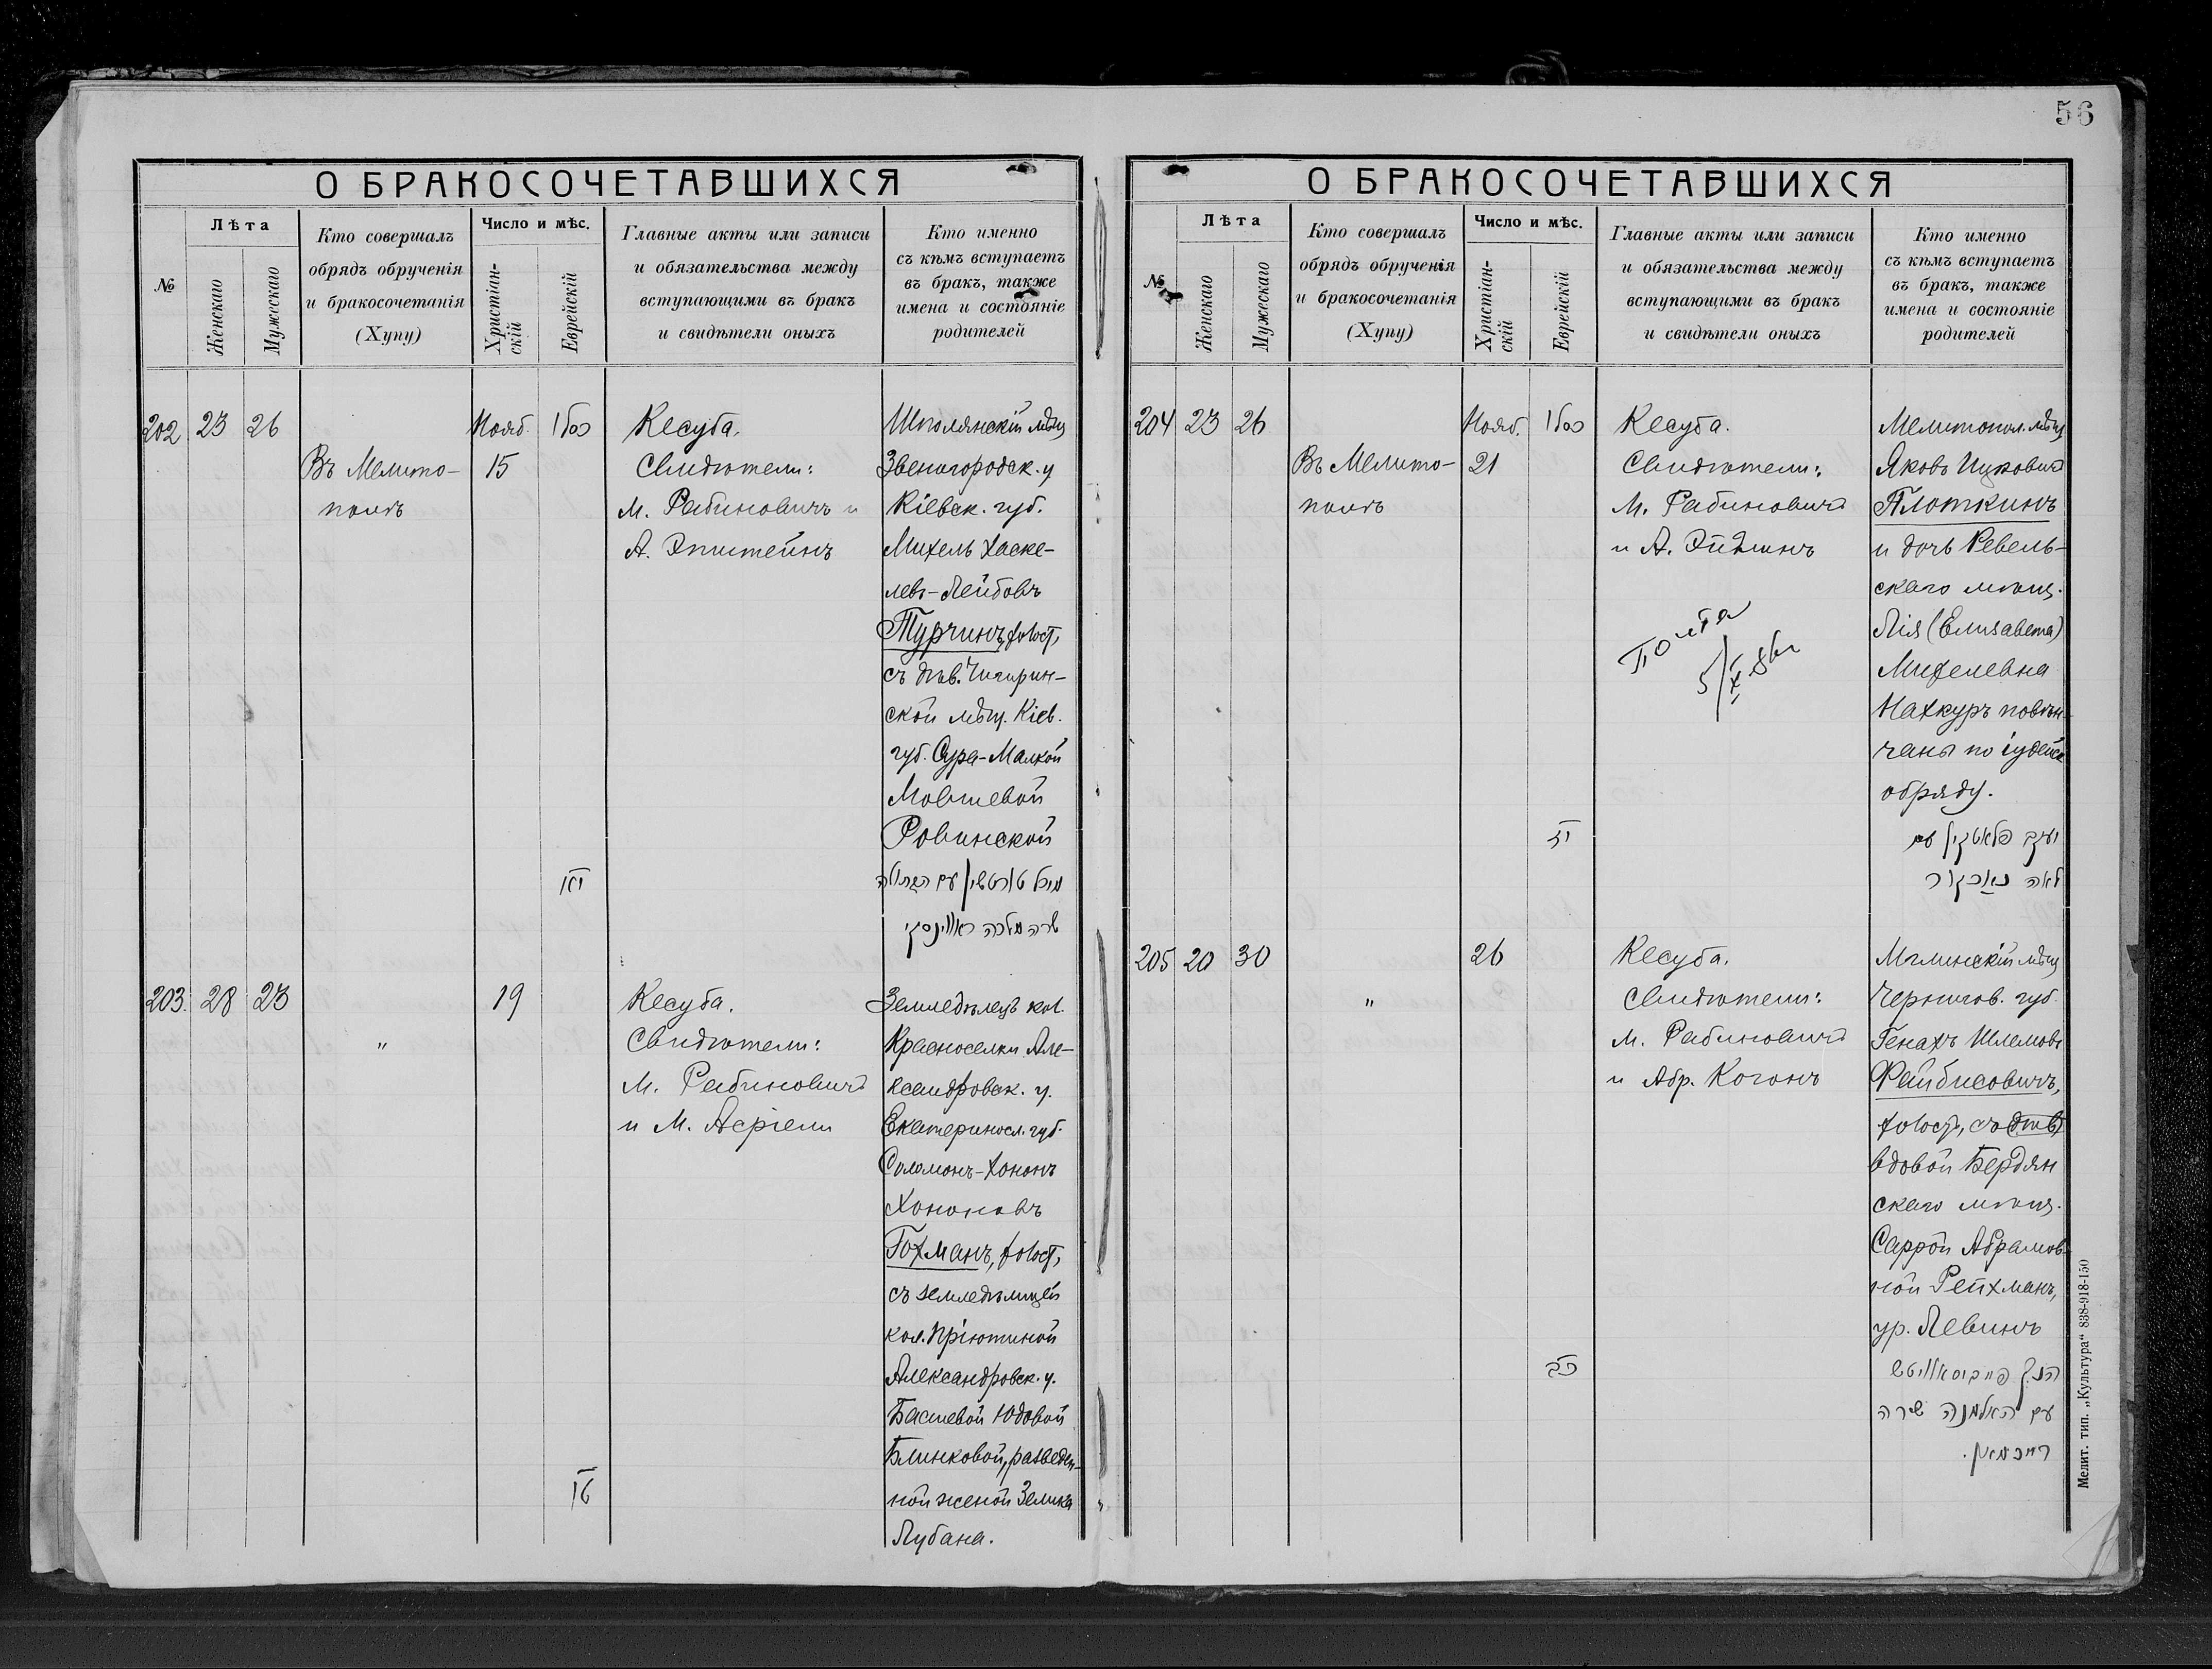 56
О БРАКОСОЧЕТАВШИХСЯ
№
Лѣта
Женскаго
Мужескаго
Кто совершалъ
обрядъ обрученія
и бракосочетанія
(Хупу)
Число и мѣс.
Христіан-
скій
Еврейскій
Главные акты или записи
и обязательства между
вступающими въ бракъ
и свидѣтели оныхъ
Кто именно
съ кѣмъ вступаетъ
въ бракъ, также
имена и состояніе
родителей
202 23 26
Въ Мелито-
полѣ
Нояб.
15
כסלו
יא
Кесуба.
Свидѣтели:
М. Рабиновичъ и
А. Эпштейнъ
Шполянскій мѣщ
Звенигородск. у
Кіевск. губ.
Михель Хаске-
левъ-Лейбовъ
Турчинъ, холост,
съ дѣв. Чигирин-
ской мѣщ. Кіев.
губ. Сура-Малкой
Мовшевой
Ровинской
מיכל טורטשין עם הבתולה
שרה מלכה ראווינסקי
203. 28 23
"
19
טו
Кесуба.
Свидѣтели:
М. Рабиновичъ
и М. Асріели
Земледѣлецъ кол.
Красноселки Але-
ксандровск. у.
Екатериносл. губ.
Соломонъ-Хононъ
Хононовъ
Гохманъ, холост,
съ земледѣлицей
кол. Пріютиной
Александровск. у.
Басшевой Юдовой
Блинковой, разведен-
ной женой Зелика
Лубана.
О БРАКОСОЧЕТАВШИХСЯ
№
Лѣта
Женскаго
Мужескаго
Кто совершалъ
обрядъ обрученія
и бракосочетанія
(Хупу)
Число и мѣс.
Христіан-
скій
Еврейскій
Главные акты или записи
и обязательства между
вступающими въ бракъ
и свидѣтели оныхъ
Кто именно
съ кѣмъ вступаетъ
въ бракъ, также
имена и состояніе
родителей
204 23 26
Въ Мелито-
полѣ
Нояб.
21
כסלו
יז
Кесуба.
Свидѣтели:
М. Рабиновичъ
и А. Эйдлинъ
5/X
Мелитопол. мѣщ
Яковъ Ицковичъ
Плоткинъ
и дочь Ревель-
скаго мѣщ.
Лія (Елизавета)
Михелевна
Нахкуръ повѣн-
чаны по іудейск
обряду.
יעקב פלאטקין עם
לאה נאכקור
205 20 30
"
26
כב
Кесуба.
Свидѣтели:
М. Рабиновичъ
и Абр. Когонъ
Мглинскій мѣщ
Чернигов. губ.
Генахъ Шлемовъ
Файбисовичъ,
холост, съ
вдовой Бердян
скаго мѣщ.
Саррой Абрамов-
ной Рейхманъ,
ур. Левинъ
הנך פייביסאוויטש
עם האלמנה שרה
רייכמאן.
Мелит. тип. „Культура“ 838-918-150